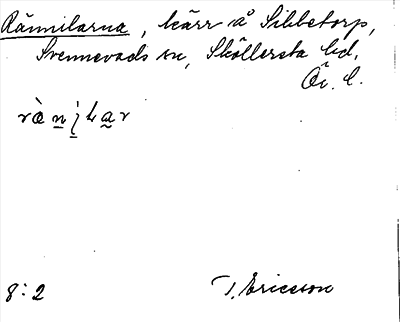 Rännilarna, kärr å Sibbetorp,
Svennevads sn, Sköllersta hd,
Ör. l.
8:2 T. Ericsson